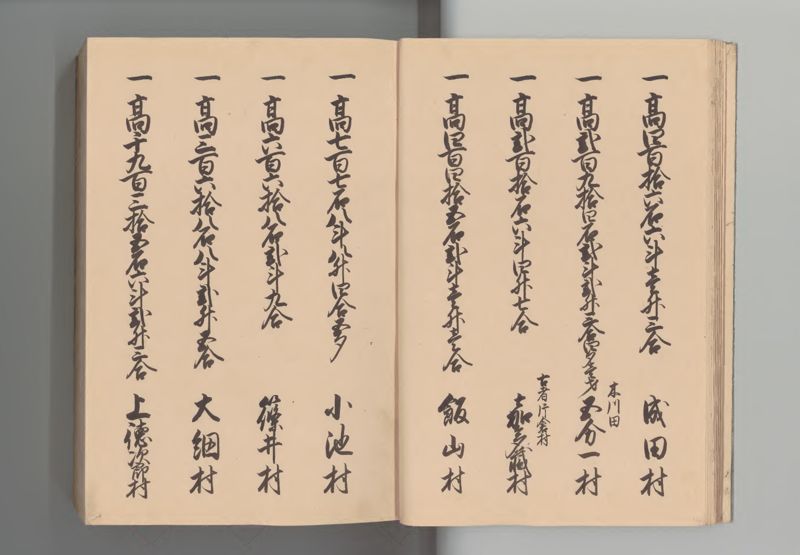 一 高四百拾六石六斗壱升三合 成田村
一 高弐百九拾四石弐斗弐升三合 五分一村
本川田
一 高弐百拾石六斗四升七合 嘉家蔵村
古者片倉村
一 高四百四拾五石弐斗壱升壱合 飯山村
一 高七百七石八斗八升四合五夕 小池村
一 高六百六拾八石弐斗九合 篠井村
一 高三百六拾八石八斗弐升五合 大網村
一 高千九百三拾五石六斗弐升三合 上徳次郎村